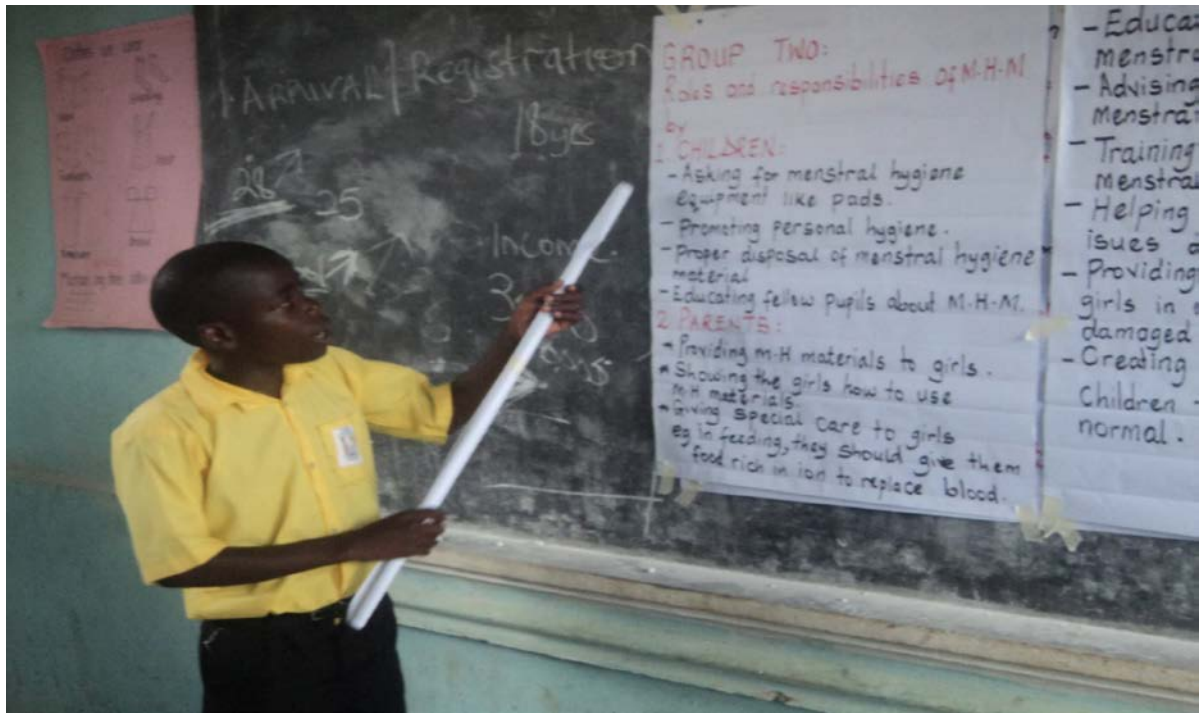 ARRIVAL/Registration
18 yrs
28
25
Income
GROUP TWO:
Roles and responsibilities of M-H-M
by
1. CHILDREN:
- Asking for menstral hygiene
equipment like pads.
- Promoting personal hygiene.
- Proper disposal of menstral hygiene
material
- Educating fellow pupils about M-H-M.
2. PARENTS:
- Providing M-H materials to girls.
- Showing the girls how to use
M-H materials.
- Giving special care to girls
eg in feeding, they should give them
food rich in ion to replace blood.
- Educa
menstra
- Advising
menstra
- Training
menstral
- Helping
isues
- Providing
girls in
damaged
- Creating
Children
normal.